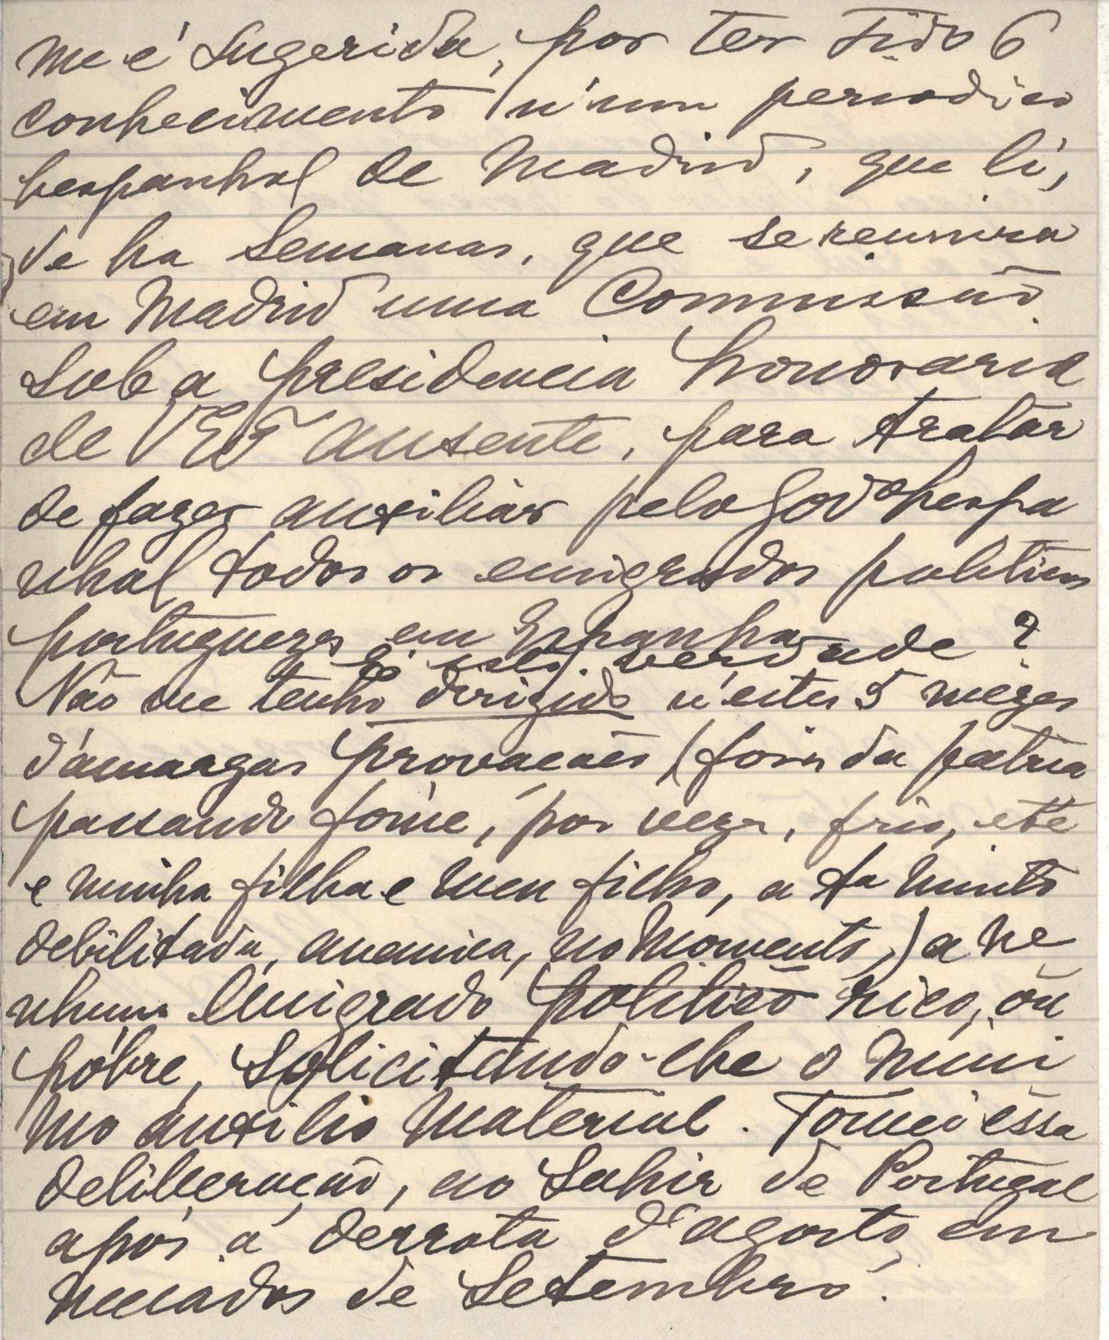 me é sugerida, por ter tido 6
conhecimento n'um periodico
hespanhol de Madrid, que li,
de ha semanas, que se reunira
em Madrid uma Commissão
sob a presidencia honoraria
de VExª ausente, para tratar
de fazer auxiliar pelo Govº hespa
nhol todos os emigrados politicos
portuguezes em Espanha
É isto verdade?
Não me tenho dirigido n'estes 5 mezes
d'amargas provações (fóra da patria
passando fome, por vezes, frio, etc
e minha filha e meu filho, a fª muito
debilitada, anemica, no momento,) a ne
nhum emigrado politico rico, ou
póbre, solicitando-lhe o mini
mo auxilio material. Tomei éssa
deliberação, ao sahir de Portugal
após á derrota d'agosto em
meiados de Setembro.